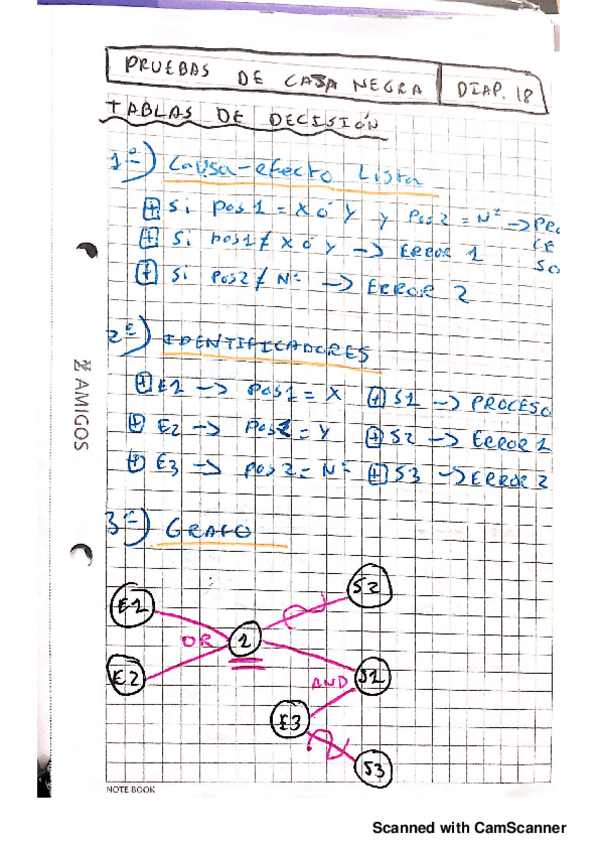 PRUEBAS DE CAJA NEGRA
DIAP. 18
TABLAS DE DECISIÓN
1º-) Causa-efecto Lista
+ Si pos1 = X ó Y y Pos2 = Nº -> PRO
CE
SO
+ Si pos1 ≠ X ó Y -> ERROR 1
+ Si pos2 ≠ Nº -> ERROR 2
2º-) IDENTIFICADORES
+ E1 -> pos1 = X + S1 -> PROCESO
+ E2 -> pos1 = Y + S2 -> ERROR 1
+ E3 -> pos2 = Nº + S3 -> ERROR 2
3º-) GRAFO
S2
E1
OR 1
E2
AND S1
E3
S3
AMIGOS
NOTE BOOK
Scanned with CamScanner